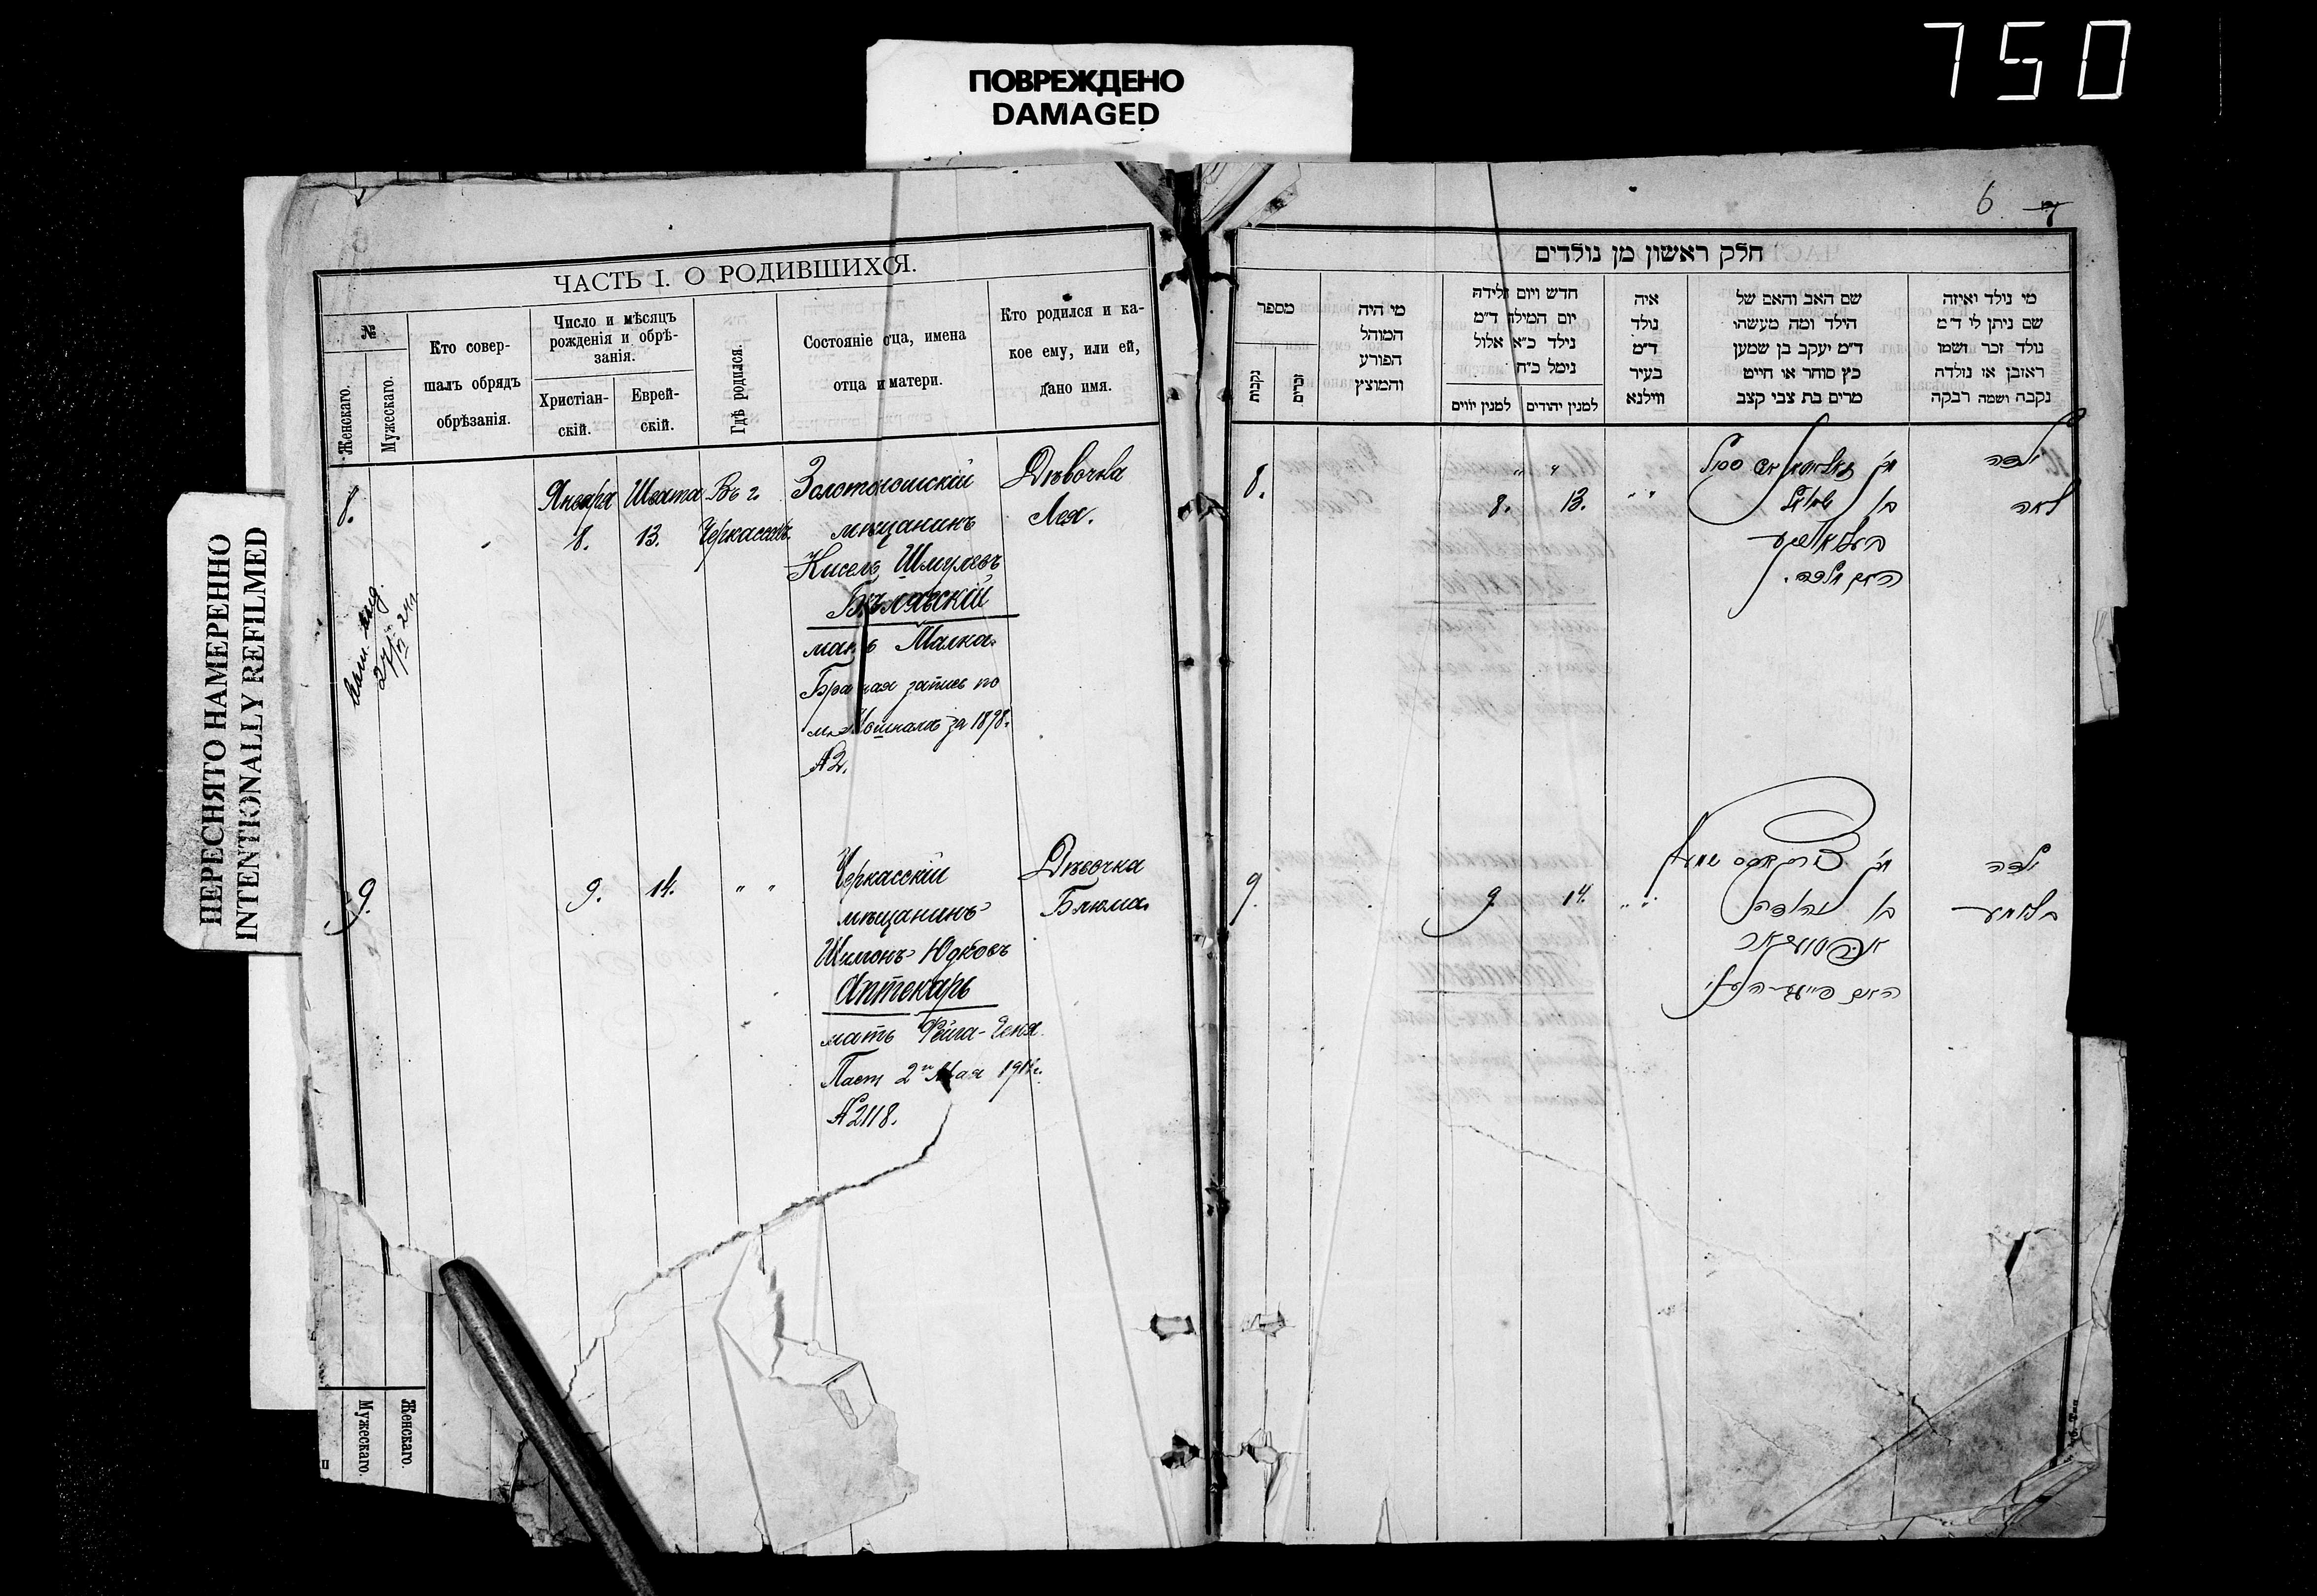 750
ПОВРЕЖДЕНО
DAMAGED
ПЕРЕСНЯТО НАМЕРЕННО
INTENTIONALLY REFILMED
ЧАСТЬ I. О РОДИВШИХСЯ.
№
Женскаго.
Мужескаго.
Кто совер-
шалъ обрядъ
обрѣзанія.
Число и мѣсяцъ
рожденія и обрѣ-
занія.
Христіан-
скій.
Еврей-
скій.
Гдѣ родился.
Состояніе отца, имена
отца и матери.
Кто родился и ка-
кое ему, или ей,
дано имя.
8.
Января
8.
Швата
13.
Въ г.
Черкассахъ.
Золотоношскій
мѣщанинъ
Кисель Шмулевъ
Бѣлявскій
мать Малка.
Брачная запись по
за 1898 г.
№ 2.
Дѣвочка
Лея.
9.
9.
14.
" "
Черкасскій
мѣщанинъ
Шимонъ Юдковъ
Аптекарь
мать Фейга-Геня
Пасп. 2го Мая
№ 2118.
Дѣвочка
Блюма.
Мужескаго.
Женскаго.
6
7
חלק ראשון מן נולדים
מספר
נקבות
זכרים
מי היה
המוהל
הפורע
והמוצץ
חדש ויום הלידה
יום המילה ד"מ
נילד כ"א אלול
נימל כ"ח
למנין יהודים
למנין יווים
איה
נולד
ד"מ
בעיר
ווילנא
שם האב והאם של
הילד ומה מעשהו
ד"מ יעקב בן שמען
כץ סוחר או חייט
מרים בת צבי קצב
מי נולד ואיזה
שם ניתן לו ד"מ
נולד זכר ושמו
ראובן או נולדה
נקבה ושמה רבקה
8.
" "
8.
13.
" "
בן שמואל
האם מלכה.
ילדה
לאה
9.
9
14.
" "
בן
ילדה
בלומע